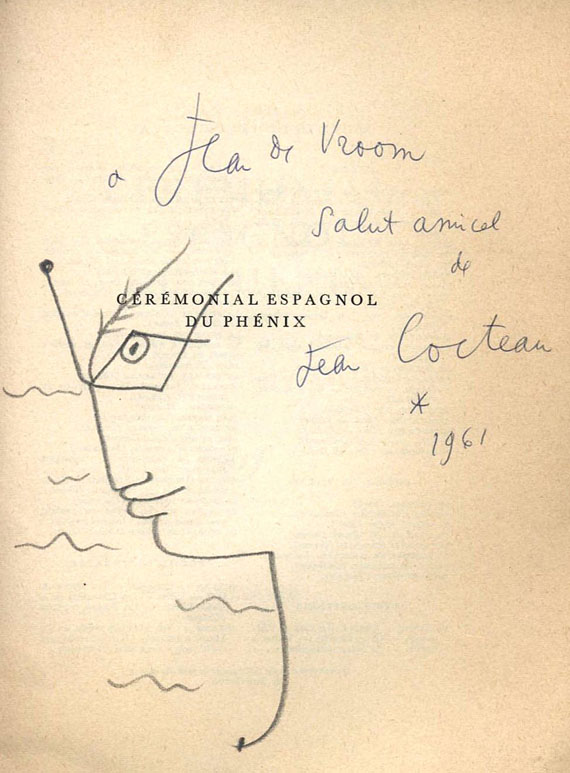 a Jean de Vroom
Salut amical
de
CÉRÉMONIAL ESPAGNOL
DU PHÉNIX
Jean Cocteau
*
1961